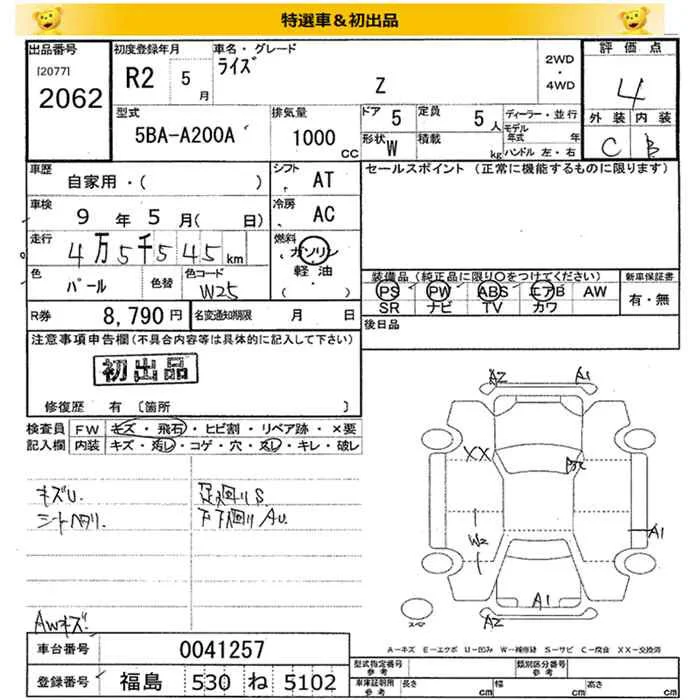 特選車&初出品
出品番号
[2077]
2062
初度登録年月
R2 5 月
車名・グレード
ライズ
Z
2WD
・
4WD
評価点
4
外装 内装
C B
型式
5BA-A200A
排気量
1000 CC
ドア 5
定員 5 人
形状 W
積載 kg
ディーラー・並行
モデル年式 年
ハンドル 左・右
車歴
自家用・( )
シフト
AT
車検
9 年 5 月( 日)
冷房
AC
走行
4万5千545 km
燃料
ガソリン
軽油
・( )
色
パール
色替
色コード
W25
R券 8,790 円
名変通知期限 月 日
セールスポイント (正常に機能するものに限ります)
装備品(純正品に限り○をつけてください)
PS PW ABS エアB AW
SR ナビ TV カワ
新車保証書
有・無
後日品
注意事項申告欄(不具合内容等は具体的に記入して下さい)
初出品
修復歴 有 〔箇所 〕
検査員記入欄
FW キズ・飛石・ヒビ割・リペア跡・×要
内装 キズ・汚レ・コゲ・穴・スレ・キレ・破レ
キズU.
足廻りS
シートヘタリ
下廻りAU.
AWキズ
A2 A1
XX
W2
A1
A1
A2
スペア
A-キズ E-エクボ U-凹み W-補修跡 S-サビ C-腐食 XX-交換済
車台番号 0041257
登録番号 福島 530 ね 5102
型式指定番号 参考
類別区分番号 参考
車庫証明用 参考
長さ cm
幅 cm
高さ cm